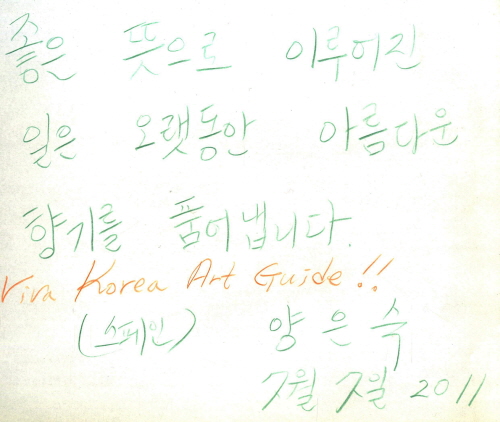 좋은 뜻으로 이루어진
일은 오랫동안 아름다운
향기를 품어냅니다.
Viva Korea Art Guide!!
(스페인) 양은숙
7월 7일 2011